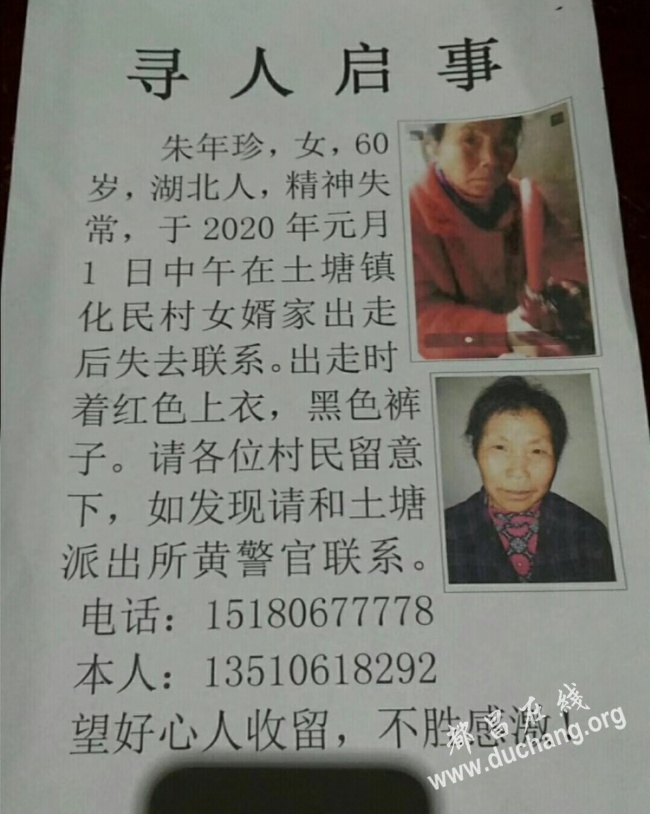 寻人启事
朱年珍，女，60
岁，湖北人，精神失
常，于2020年元月
1日中午在土塘镇
化民村女婿家出走
后失去联系。出走时
着红色上衣，黑色裤
子。请各位村民留意
下，如发现请和土塘
派出所黄警官联系。
电话：15180677778
本人：13510618292
望好心人收留，不胜感激！
都昌在线
www.duchang.org